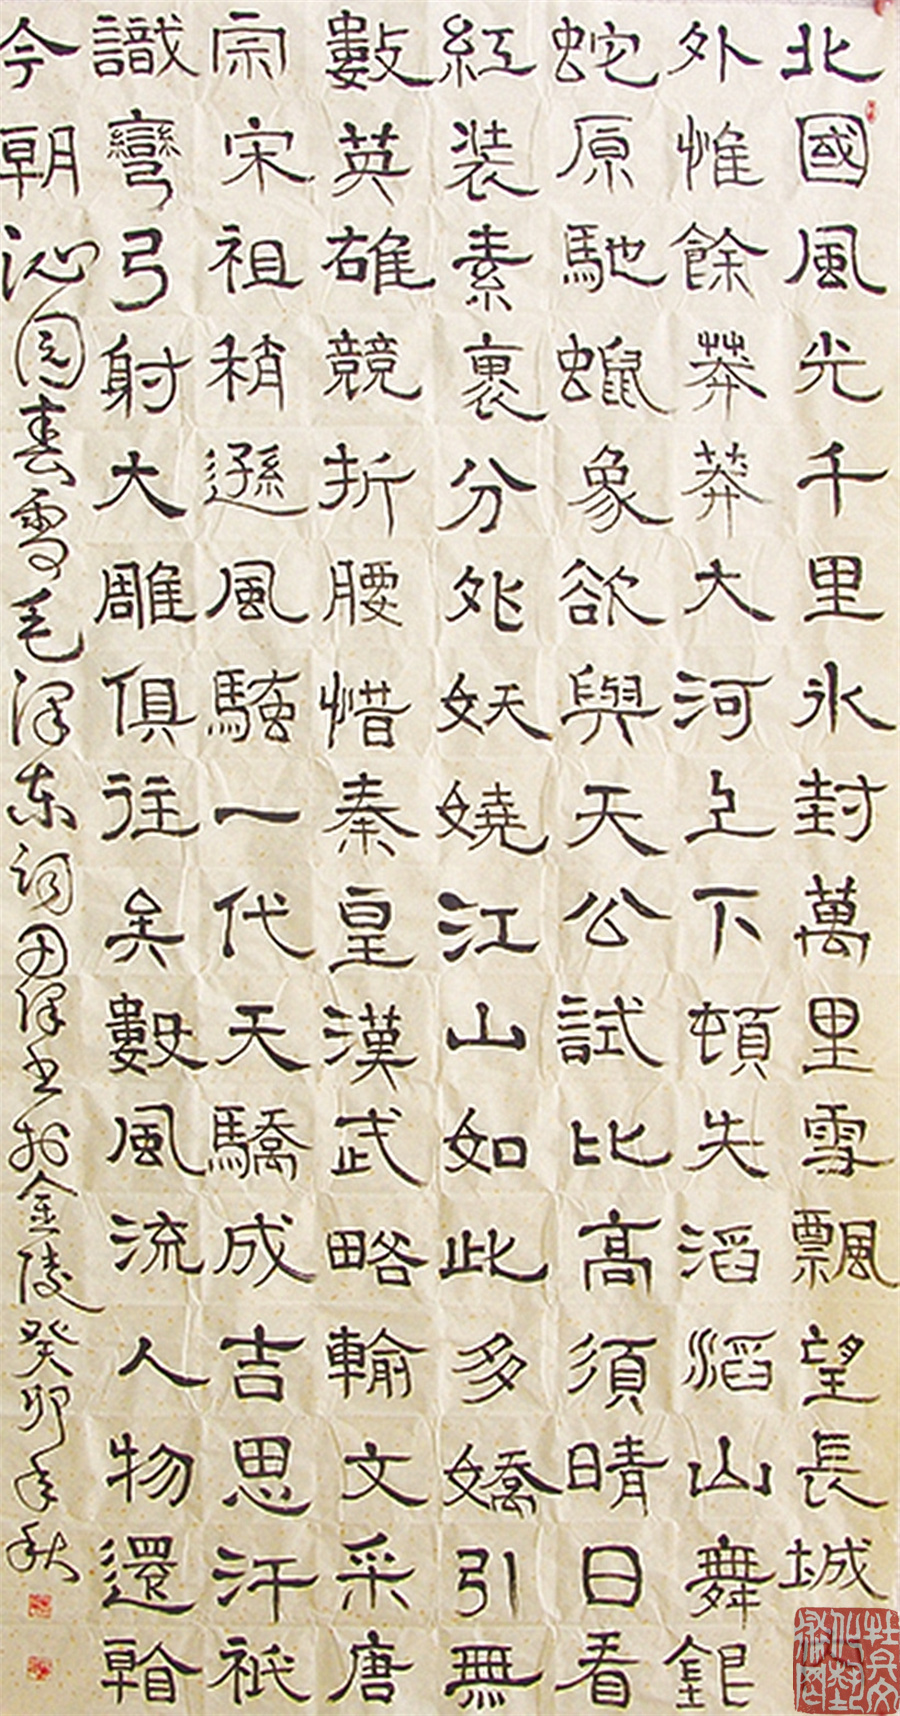 北國風光千里氷封萬里雪飄望長城
外惟餘莽莽大河上下頓失滔滔山舞銀
蛇原馳蠟象欲與天公試比高須晴日看
紅装素裹分外妖嬈江山如此多嬌引無
數英雄競折腰惜秦皇漢武略輸文采唐
宗宋祖稍遜風騷一代天驕成吉思汗祇
識彎弓射大雕俱往矣數風流人物還看
今朝沁園春雪毛澤东詞田澤书於金陵癸卯年秋